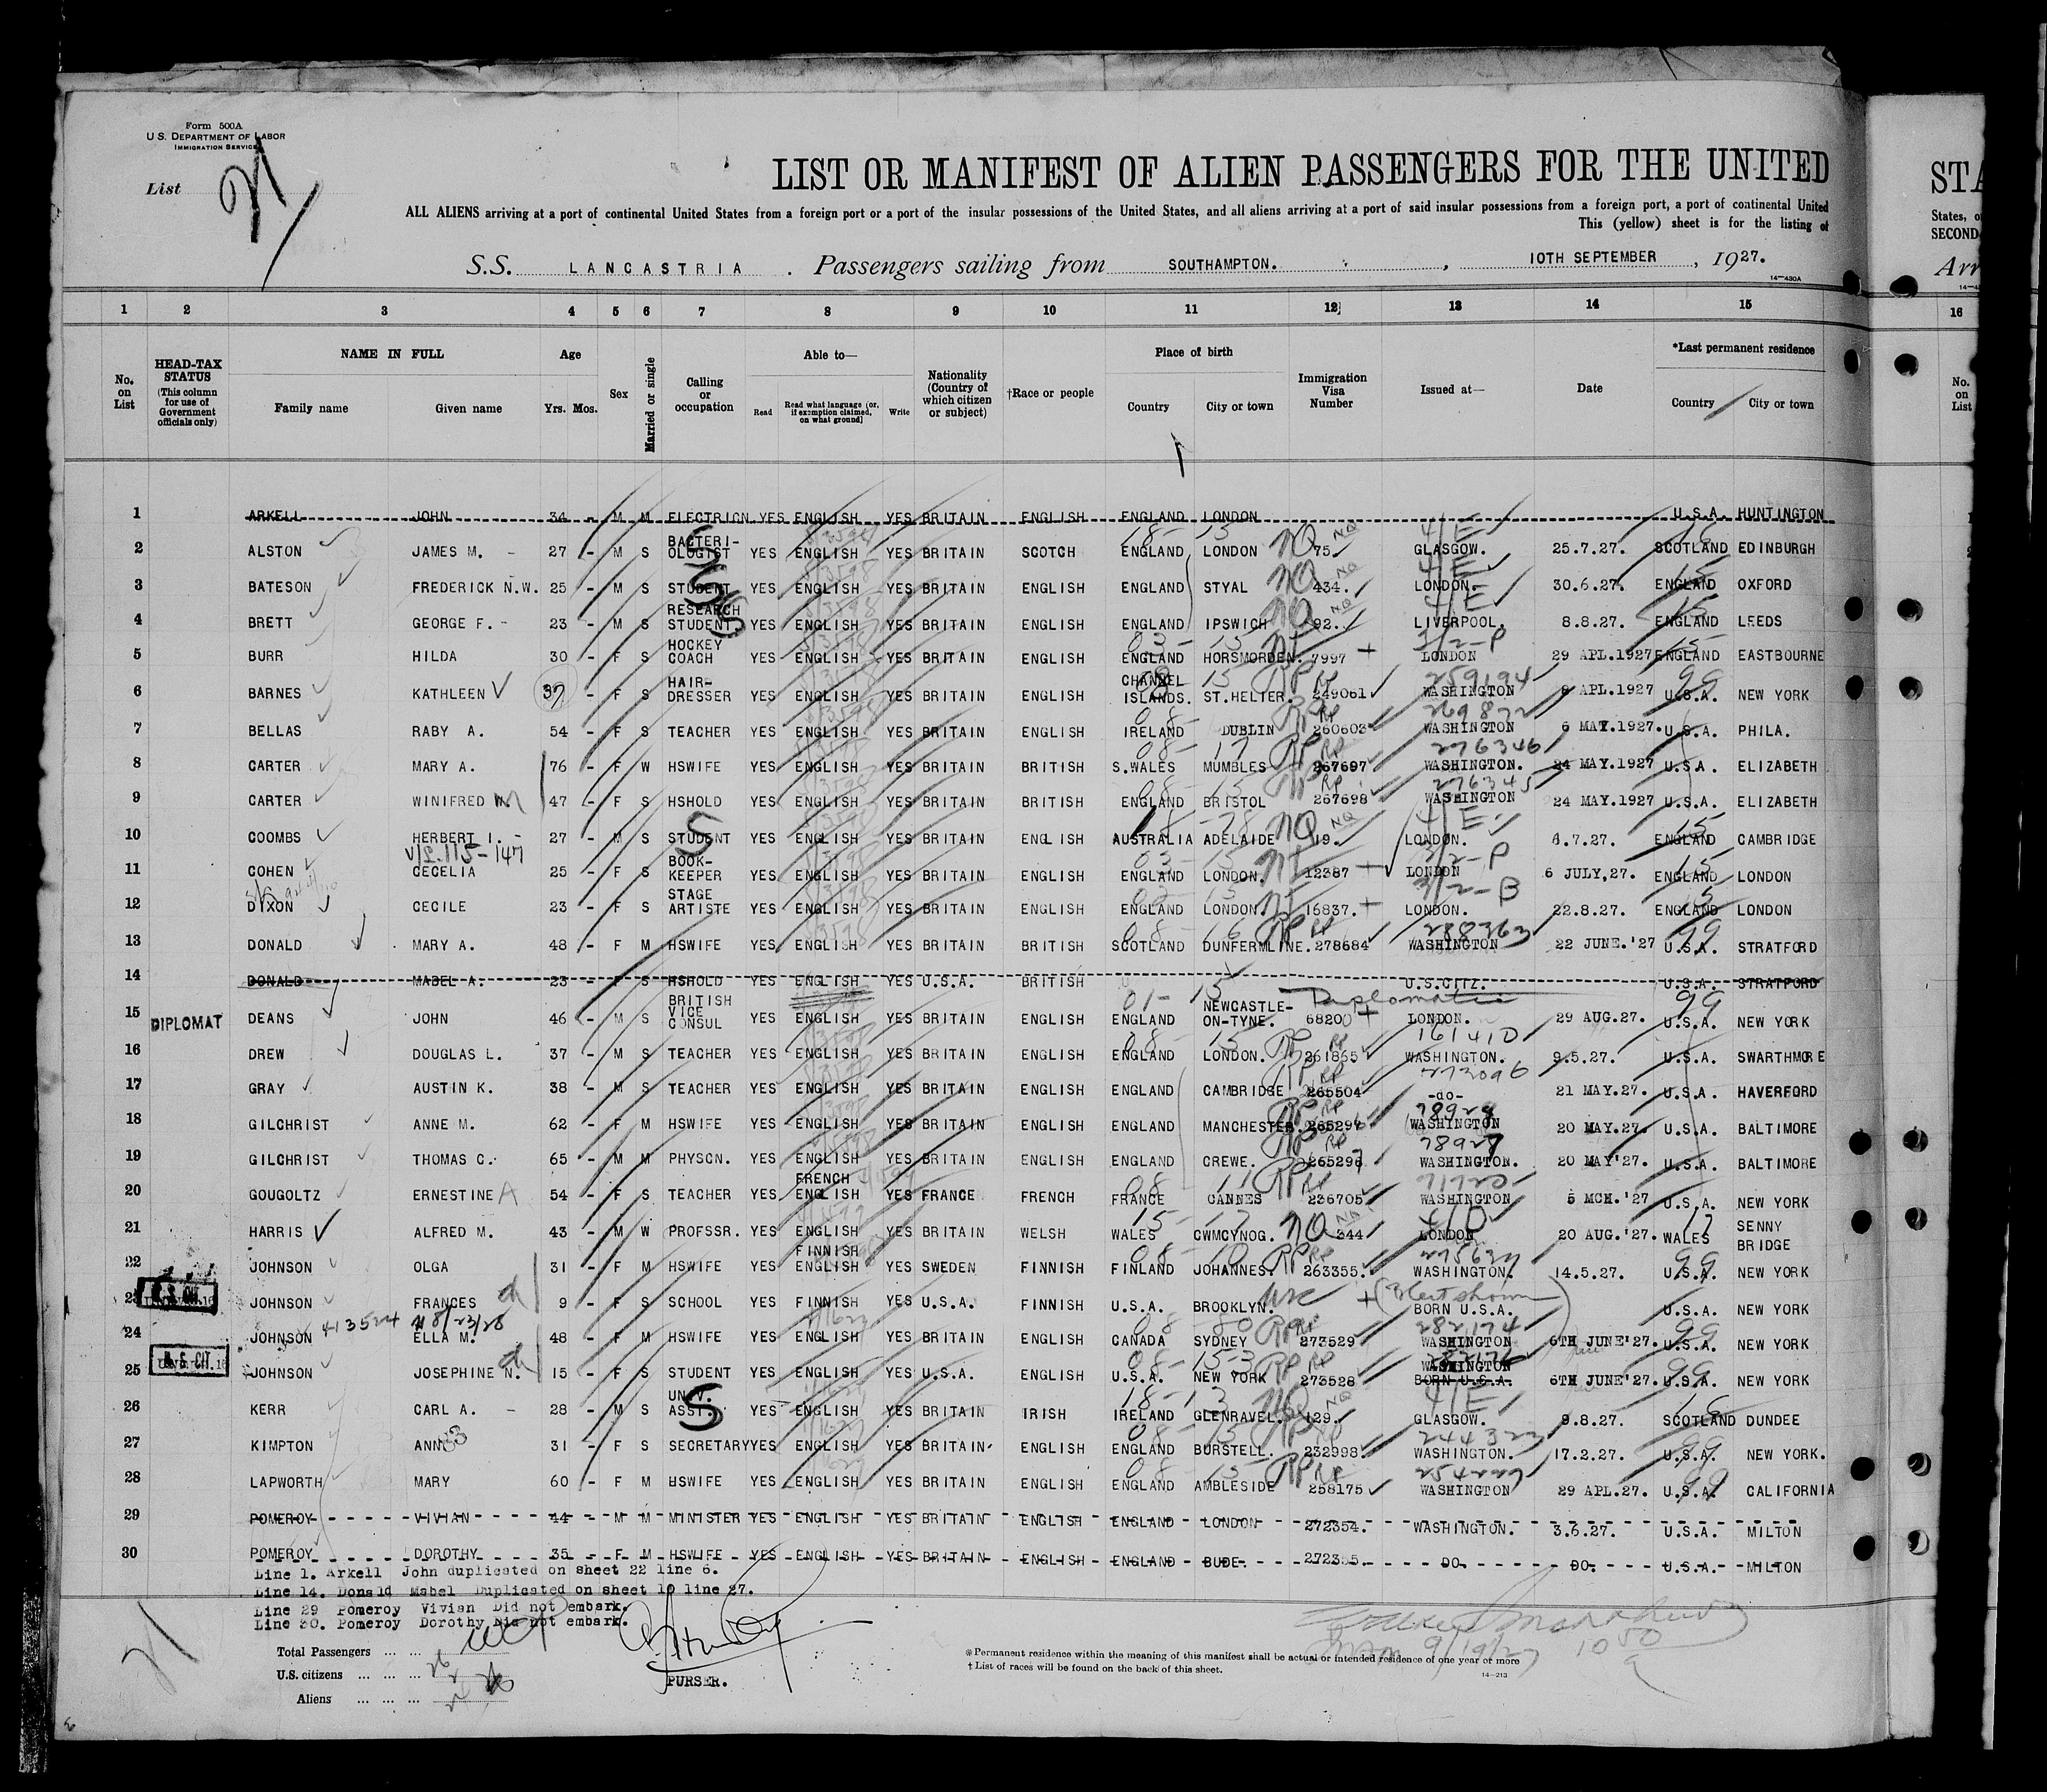 Form 500A
U.S. DEPARTMENT OF LABOR
IMMIGRATION SERVICE
List 21
LIST OR MANIFEST OF ALIEN PASSENGERS FOR THE UNITED
STA
ALL ALIENS arriving at a port of continental United States from a foreign port or a port of the insular possessions of the United States, and all aliens arriving at a port of said insular possessions from a foreign port, a port of continental United
States, o
This (yellow) sheet is for the listing of
SECOND-
S.S. LANCASTRIA . Passengers sailing from SOUTHAMPTON. , 10TH SEPTEMBER , 1927.
Arr
14—430A
1 2 3 4 5 6 7 8 9 10 11 12 13 14 15 16
No. on List
HEAD-TAX STATUS (This column for use of Government officials only)
NAME IN FULL Family name Given name
Age Yrs. Mos.
Sex
Married or single
Calling or occupation
Able to— Read Read what language (or, if exemption claimed, on what ground) Write
Nationality (Country of which citizen or subject)
†Race or people
Place of birth Country City or town
Immigration Visa Number
Issued at—
Date
*Last permanent residence Country City or town
No. on List
1 ARKELL JOHN 34 - M M ELECTRICN YES ENGLISH YES BRITAIN ENGLISH ENGLAND LONDON U.S.A. HUNTINGTON
2 ALSTON JAMES M. - 27 - M S BACTERI-OLOGIST YES ENGLISH YES BRITAIN SCOTCH ENGLAND LONDON NQ 75. GLASGOW. 4/E 25.7.27. SCOTLAND EDINBURGH
3 BATESON FREDERICK N.W. 25 - M S STUDENT YES ENGLISH YES BRITAIN ENGLISH ENGLAND STYAL NQ 434. LONDON. 4/E 30.6.27. ENGLAND OXFORD
4 BRETT GEORGE F. - 23 - M S RESEARCH STUDENT YES ENGLISH YES BRITAIN ENGLISH ENGLAND IPSWICH NQ 92. LIVERPOOL. 4/E 8.8.27. ENGLAND LEEDS
5 BURR HILDA 30 - F S HOCKEY COACH YES ENGLISH YES BRITAIN ENGLISH ENGLAND HORSMORDEN. 7997 LONDON 29 APL.1927 ENGLAND EASTBOURNE
6 BARNES KATHLEEN 37 - F S HAIR-DRESSER YES ENGLISH YES BRITAIN ENGLISH CHANNEL ISLANDS. ST.HELIER RP 249061 WASHINGTON 259194 8 APL.1927 U.S.A. NEW YORK
7 BELLAS RABY A. 54 - F S TEACHER YES ENGLISH YES BRITAIN ENGLISH IRELAND DUBLIN RP 260603 WASHINGTON 6 MAY.1927. U.S.A. PHILA.
8 CARTER MARY A. 76 - F W HSWIFE YES ENGLISH YES BRITAIN BRITISH S.WALES MUMBLES RP 267697 WASHINGTON. 276346 24 MAY.1927 U.S.A. ELIZABETH
9 CARTER WINIFRED M 47 - F S HSHOLD YES ENGLISH YES BRITAIN BRITISH ENGLAND BRISTOL RP 267698 WASHINGTON 276345 24 MAY.1927 U.S.A. ELIZABETH
10 COOMBS HERBERT I. - 27 - M S STUDENT YES ENGLISH YES BRITAIN ENGLISH AUSTRALIA ADELAIDE NQ 19. LONDON. 4/E 6.7.27. ENGLAND CAMBRIDGE
11 COHEN CECELIA 25 - F S BOOK-KEEPER YES ENGLISH YES BRITAIN ENGLISH ENGLAND LONDON. 12387 LONDON 6 JULY,27. ENGLAND LONDON
12 DIXON CECILE 23 - F S STAGE ARTISTE YES ENGLISH YES BRITAIN ENGLISH ENGLAND LONDON. 16837. LONDON. 22.8.27. ENGLAND LONDON
13 DONALD MARY A. 48 - F M HSWIFE YES ENGLISH YES BRITAIN BRITISH SCOTLAND DUNFERMLINE. RP 278684 WASHINGTON 288363 22 JUNE.'27 U.S.A. STRATFORD
14 DONALD MABEL A. 23 - F S HSHOLD YES ENGLISH YES U.S.A. BRITISH U.S.CITZ. U.S.A. STRATFORD
15 DIPLOMAT DEANS JOHN 46 - M S BRITISH VICE CONSUL YES ENGLISH YES BRITAIN ENGLISH ENGLAND NEWCASTLE-ON-TYNE. Diplomatic 68200 LONDON. 29 AUG.27. U.S.A. NEW YORK
16 DREW DOUGLAS L. 37 - M S TEACHER YES ENGLISH YES BRITAIN ENGLISH ENGLAND LONDON. RP 261865 WASHINGTON. 161410 9.5.27. U.S.A. SWARTHMORE
17 GRAY AUSTIN K. 38 - M S TEACHER YES ENGLISH YES BRITAIN ENGLISH ENGLAND CAMBRIDGE RP 265504 -do- 273096 21 MAY.27. U.S.A. HAVERFORD
18 GILCHRIST ANNE M. 62 - F M HSWIFE YES ENGLISH YES BRITAIN ENGLISH ENGLAND MANCHESTER. RP WASHINGTON 20 MAY.27. U.S.A. BALTIMORE
19 GILCHRIST THOMAS C. 65 - M M PHYSCN. YES ENGLISH YES BRITAIN ENGLISH ENGLAND CREWE. RP WASHINGTON. 20 MAY'27. U.S.A. BALTIMORE
20 GOUGOLTZ ERNESTINE A 54 - F S TEACHER YES FRENCH ENGLISH YES FRANCE FRENCH FRANCE CANNES RP 236705 WASHINGTON 5 MCH.'27 U.S.A. NEW YORK
21 HARRIS ALFRED M. 43 - M W PROFSSR. YES ENGLISH YES BRITAIN WELSH WALES CWMCYNOG. NQ 344 LONDON 4/D 20 AUG.'27. WALES SENNY BRIDGE
22 JOHNSON OLGA 31 - F M HSWIFE YES FINNISH ENGLISH YES SWEDEN FINNISH FINLAND JOHANNES. RP 263355. WASHINGTON. 14.5.27. U.S.A. NEW YORK
23 U.S. CIT. JOHNSON FRANCES 9 - F S SCHOOL YES FINNISH YES U.S.A. FINNISH U.S.A. BROOKLYN. BORN U.S.A. U.S.A. NEW YORK
24 JOHNSON ELLA M. 48 - F M HSWIFE YES ENGLISH YES BRITAIN ENGLISH CANADA SYDNEY RP 273529 WASHINGTON 282174 6TH JUNE'27. U.S.A. NEW YORK
25 U.S. CIT. JOHNSON JOSEPHINE N. 15 - F S STUDENT YES ENGLISH YES U.S.A. ENGLISH U.S.A. NEW YORK RP 273528 WASHINGTON BORN U.S.A. 6TH JUNE'27. U.S.A. NEW YORK
26 KERR CARL A. - 28 - M S UNIV. ASST. YES ENGLISH YES BRITAIN IRISH IRELAND GLENRAVEL. 129. GLASGOW. 4/E 9.8.27. SCOTLAND DUNDEE
27 KIMPTON ANN 31 - F S SECRETARY YES ENGLISH YES BRITAIN ENGLISH ENGLAND BURSTELL. RP 232998. WASHINGTON. 17.2.27. U.S.A. NEW YORK.
28 LAPWORTH MARY 60 - F M HSWIFE YES ENGLISH YES BRITAIN ENGLISH ENGLAND AMBLESIDE RP 258175 WASHINGTON 29 APL.27. U.S.A. CALIFORNIA
29 POMEROY VIVIAN 44 - M M MINISTER YES ENGLISH YES BRITAIN ENGLISH ENGLAND LONDON 272354. WASHINGTON. 3.6.27. U.S.A. MILTON
30 POMEROY DOROTHY 35 - F M HSWIFE YES ENGLISH YES BRITAIN ENGLISH ENGLAND BUDE. 272355. DO. DO. U.S.A. MILTON
Line 1. Arkell John duplicated on sheet 22 line 6.
Line 14. Donald Mabel Duplicated on sheet 10 line 27.
Line 29 Pomeroy Vivian Did not embark.
Line 30. Pomeroy Dorothy Did not embark.
Total Passengers ... ...
U.S. citizens ... ... ...
Aliens ... ... ...
PURSER.
9/19/27
* Permanent residence within the meaning of this manifest shall be actual or intended residence of one year or more
† List of races will be found on the back of this sheet.
14—213
21